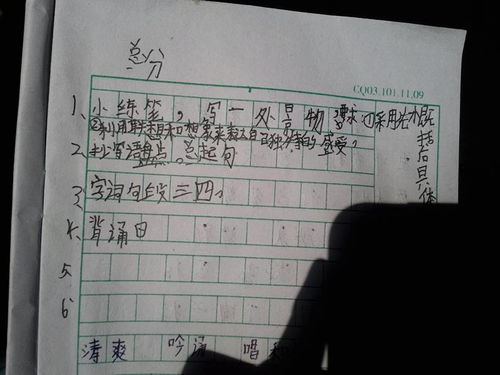 总分
CQ03.101.11.09
1、小练笔,写一处景物 要求①采用先概括后具体
②利用联想和想象来表达自己独特的感受。
2、抄背语盘点 总起句
3、字词句段三四。
4、背诵日
5
6
清爽 吟诵 唱和